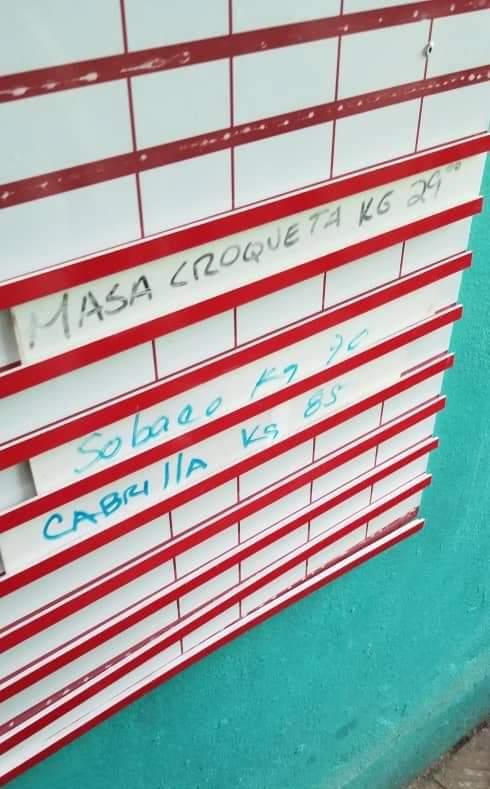 MASA CROQUETA KG 29⁰⁰
Sobaco Kg 70
CABRILLA KG 85